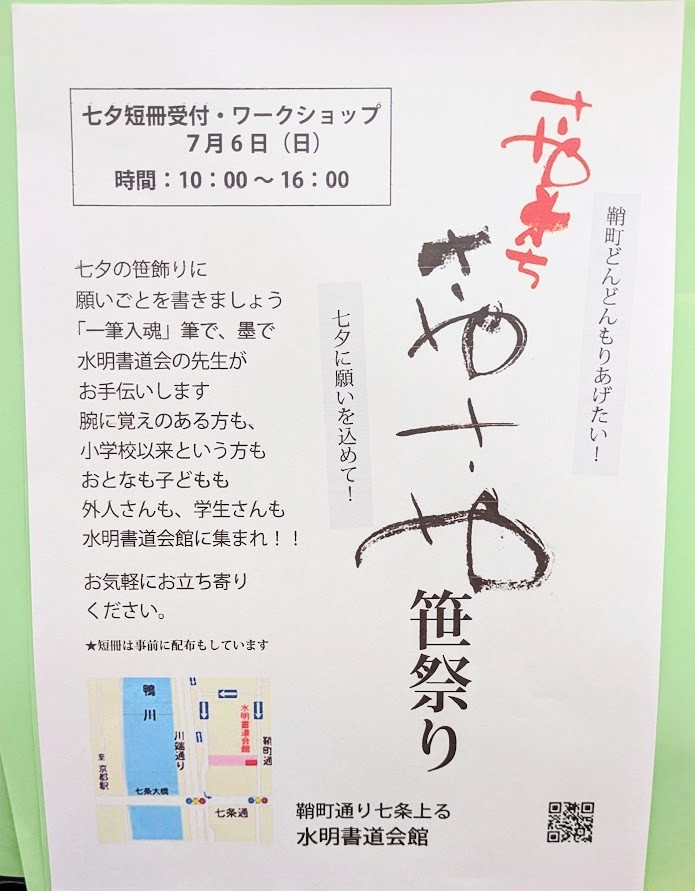 七夕短冊受付・ワークショップ
７月６日（日）
時間：10：00～16：00
鞘町どんどんもりあげたい！
さやまち
さやさや
笹祭り
七夕に願いを込めて！
七夕の笹飾りに
願いごとを書きましょう
「一筆入魂」筆で、墨で
水明書道会の先生が
お手伝いします
腕に覚えのある方も、
小学校以来という方も
おとなも子どもも
外人さんも、学生さんも
水明書道会館に集まれ！！
お気軽にお立ち寄り
ください。
★短冊は事前に配布もしています
鴨川
川端通り
水明書道会館
鞘町通
至 京都駅
七条大橋
七条通
鞘町通り七条上る
水明書道会館